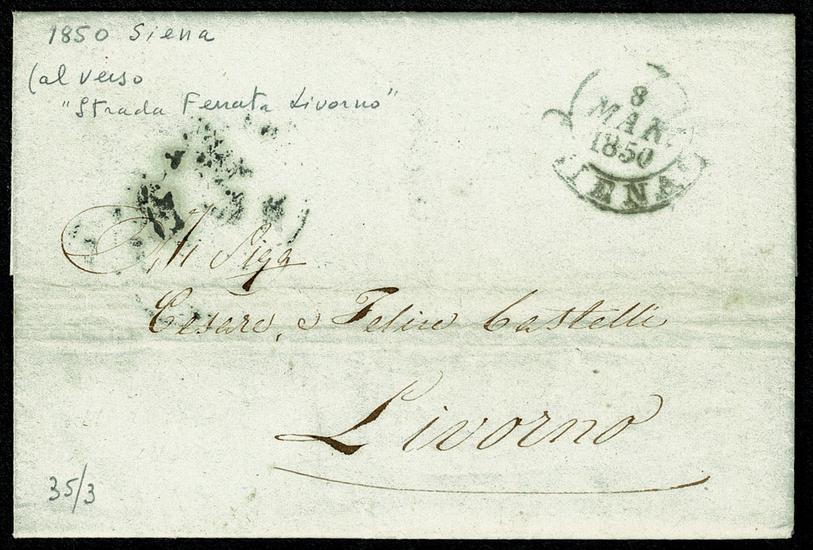 1850 Siena
(al verso
"Strada Ferrata Livorno"
8
MAR.
1850
SIENA
Alli Sigg
Cesare, e Felice Castelli
Livorno
35/3